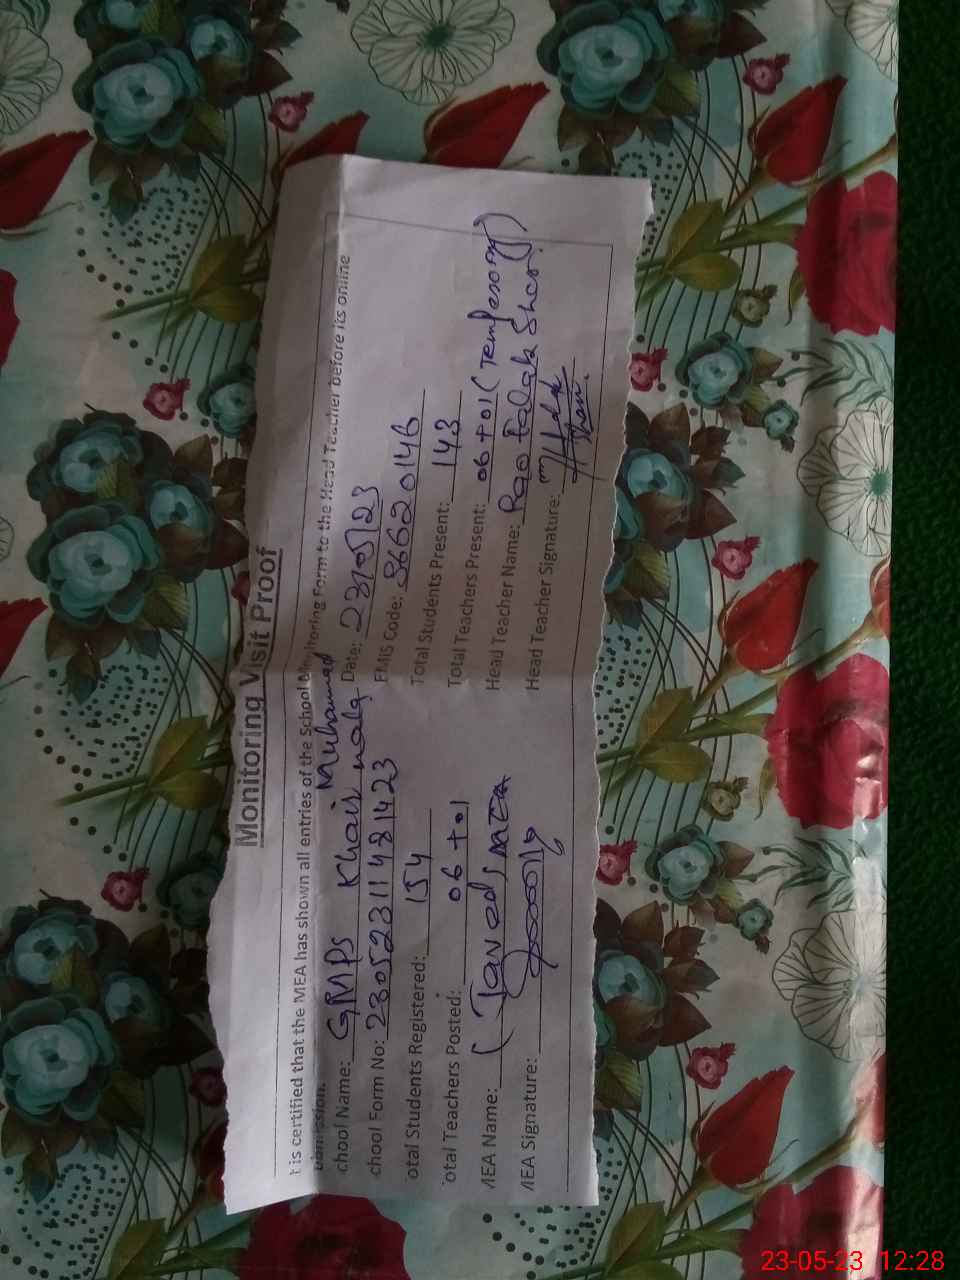 Monitoring Visit Proof
t is certified that the MEA has shown all entries of the School Monitoring Form to the Head Teacher before its online
bmission.
chool Name: GMPS Khair Muhammad Date: 23/05/23
chool Form No: 23052311481423 EMIS Code: 36620146
otal Students Registered: 154 Total Students Present: 143
otal Teachers Posted: 06+01 Total Teachers Present: 06+01 (Temporary)
MEA Name: (Javed, MEA Head Teacher Name: Rao Falak Sher
MEA Signature: Head Teacher Signature:
23-05-23 12:28